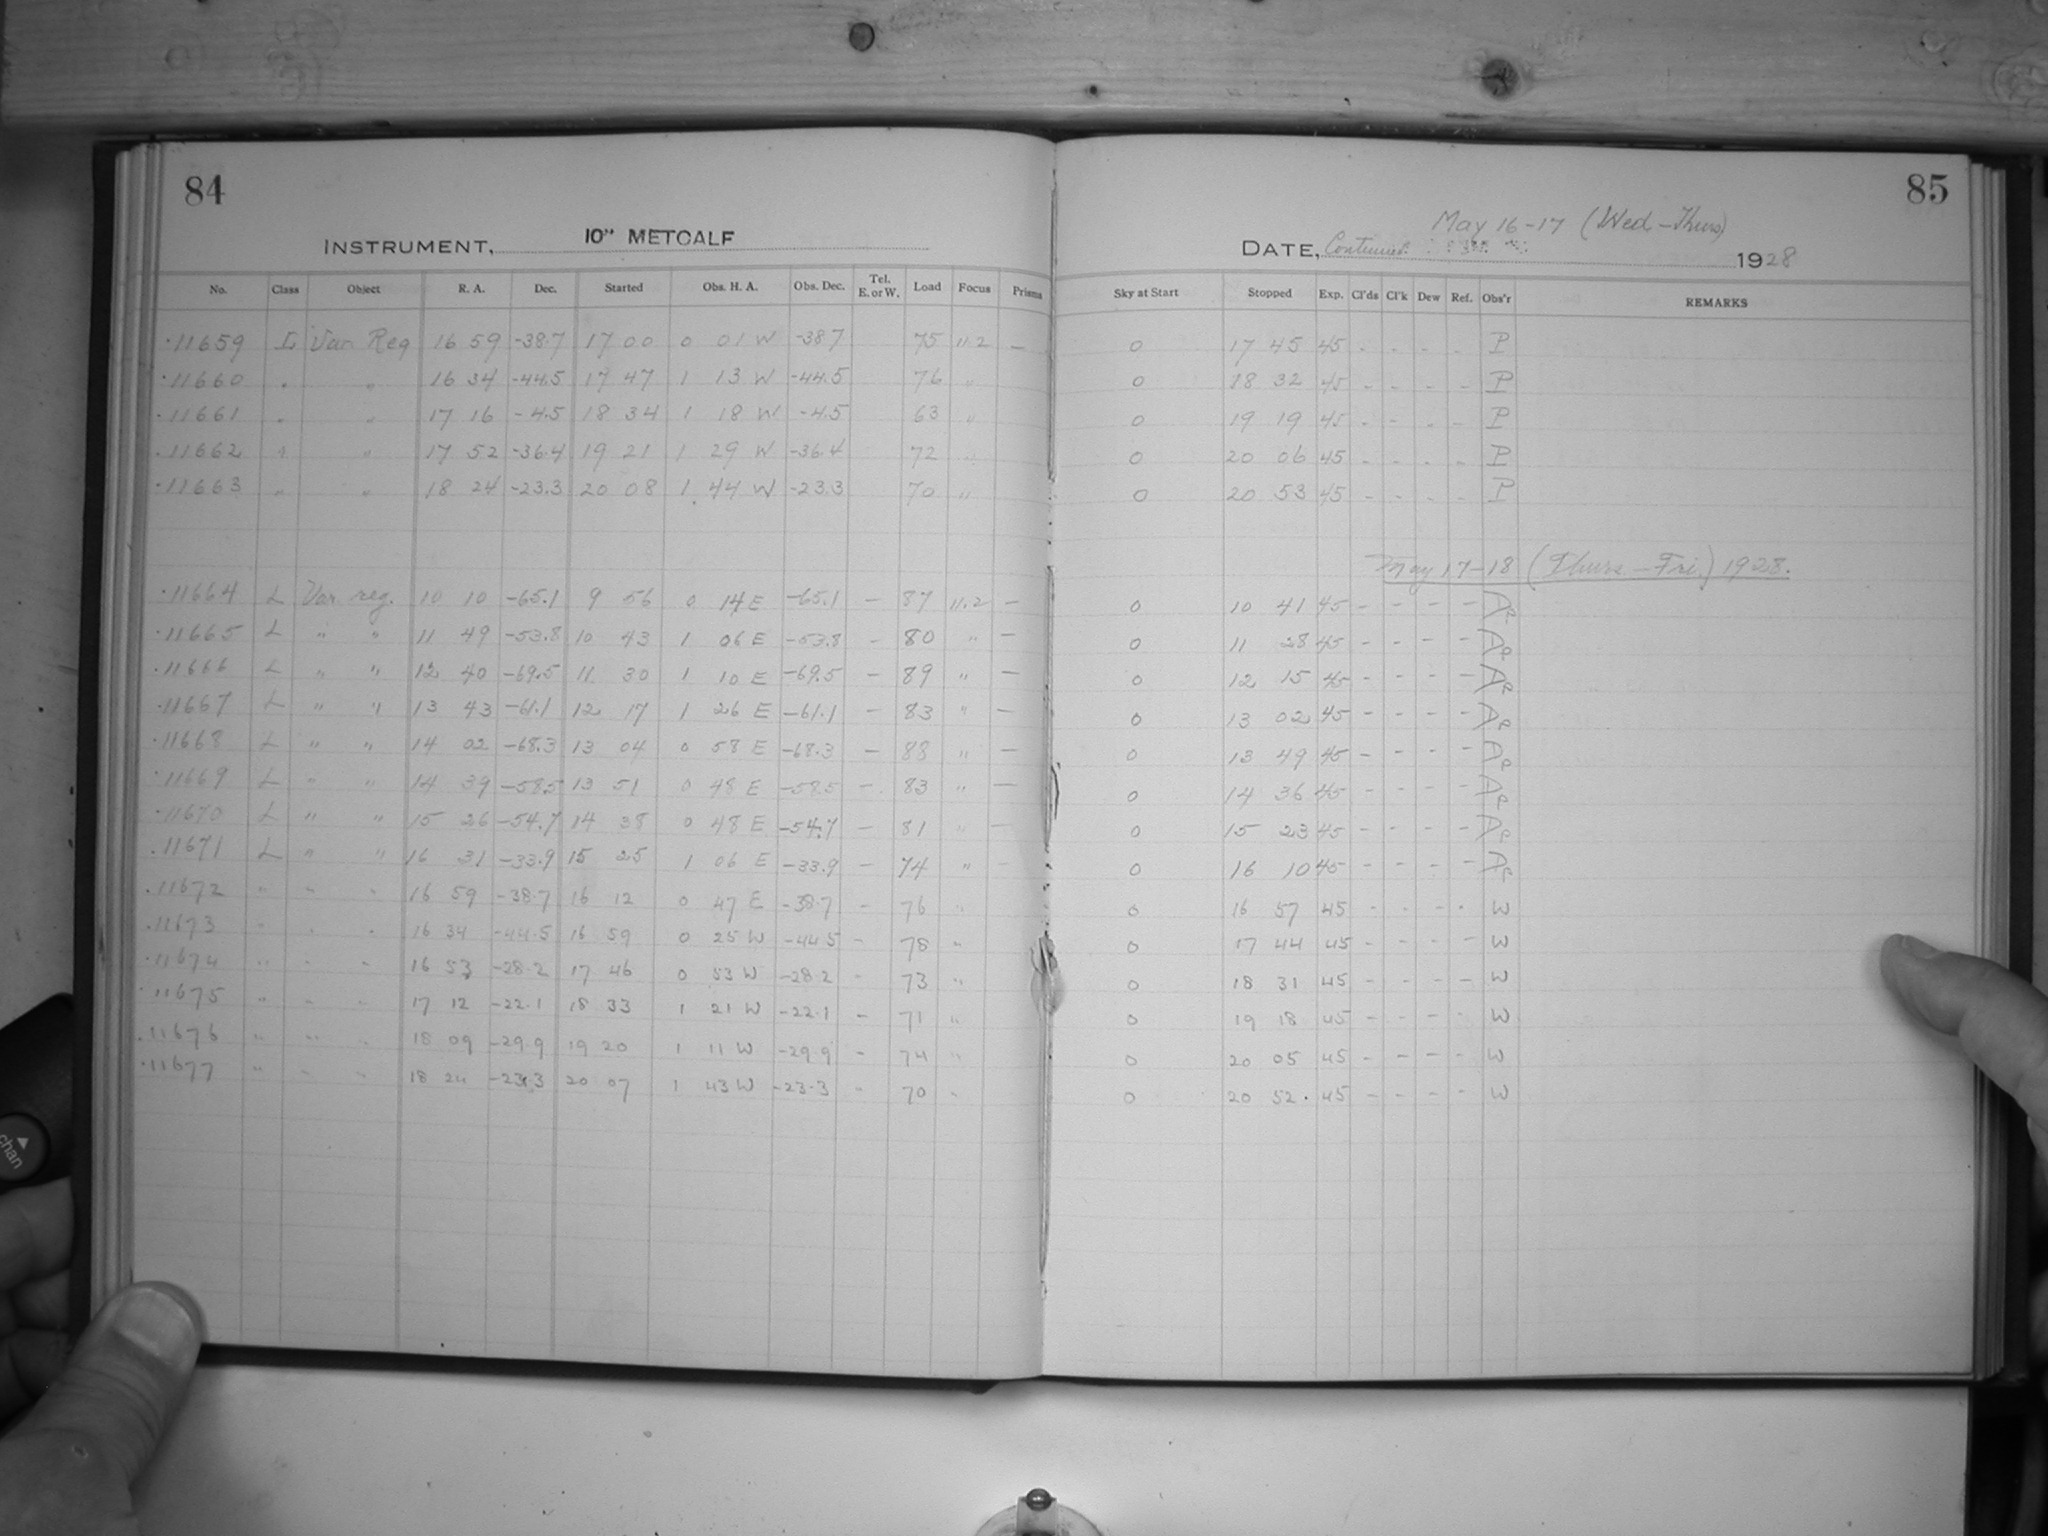 84
INSTRUMENT, 10" METCALF
No. Class Object R. A. Dec. Started Obs. H. A. Obs. Dec. Tel. E. or W. Load Focus Prisms
11659 L Var Reg 16 59 -38.7 17 00 0 01 W -38.7 75 11.2 —
11660 " " 16 34 -44.5 17 47 1 13 W -44.5 76 "
11661 " " 17 16 -4.5 18 34 1 18 W -4.5 63 "
11662 " " 17 52 -36.4 19 21 1 29 W -36.4 72 "
11663 " " 18 24 -23.3 20 08 1 44 W -23.3 70 "
11664 L Var reg. 10 10 -65.1 9 56 0 14 E -65.1 — 87 11.2 —
11665 L " " 11 49 -53.8 10 43 1 06 E -53.8 — 80 " —
11666 L " " 12 40 -69.5 11 30 1 10 E -69.5 — 89 " —
11667 L " " 13 43 -61.1 12 17 1 26 E -61.1 — 83 " —
11668 L " " 14 02 -68.3 13 04 0 58 E -68.3 — 88 " —
11669 L " " 14 39 -58.5 13 51 0 48 E -58.5 — 83 " —
11670 L " " 15 26 -54.7 14 38 0 48 E -54.7 — 81 " —
11671 L " " 16 31 -33.9 15 25 1 06 E -33.9 — 74 " —
11672 " " " 16 59 -38.7 16 12 0 47 E -38.7 - 76 "
11673 " " " 16 34 -44.5 16 59 0 25 W -44.5 - 78 "
11674 " " " 16 53 -28.2 17 46 0 53 W -28.2 - 73 "
11675 " " " 17 12 -22.1 18 33 1 21 W -22.1 - 71 "
11676 " " " 18 09 -29.9 19 20 1 11 W -29.9 - 74 "
11677 " " " 18 24 -23.3 20 07 1 43 W -23.3 - 70 "
85
May 16-17 (Wed-Thurs)
DATE, Continued 1928
Sky at Start Stopped Exp. Cl'ds Cl'k Dew Ref. Obs'r REMARKS
0 17 45 45 - - - - P
0 18 32 45 - - - - P
0 19 19 45 - - - - P
0 20 06 45 - - - - P
0 20 53 45 - - - - P
May 17-18 (Thurs-Fri.) 1928.
0 10 41 45 - - - -
0 11 28 45 - - - -
0 12 15 45 - - - -
0 13 02 45 - - - -
0 13 49 45 - - - -
0 14 36 45 - - - -
0 15 23 45 - - - -
0 16 10 45 - - - -
0 16 57 45 - - - - W
0 17 44 45 - - - - W
0 18 31 45 - - - - W
0 19 18 45 - - - - W
0 20 05 45 - - - - W
0 20 52 45 - - - - W
chan